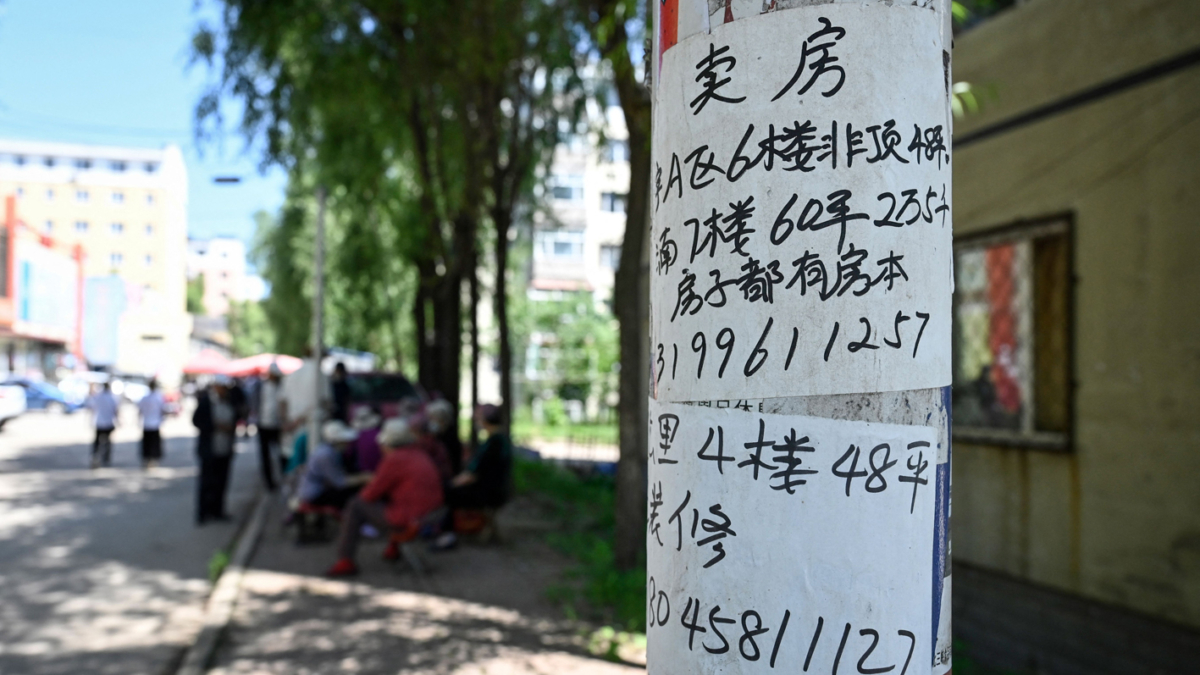 卖房
A区6楼非顶48平
7楼60平2万5千
房子都有房本
3199611257
里4楼48平
装修
3045811127